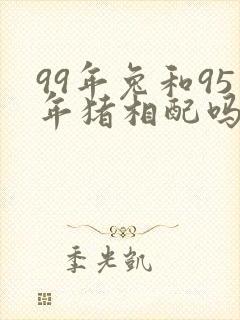 99年兔和95
年猪相配吗
季光凯